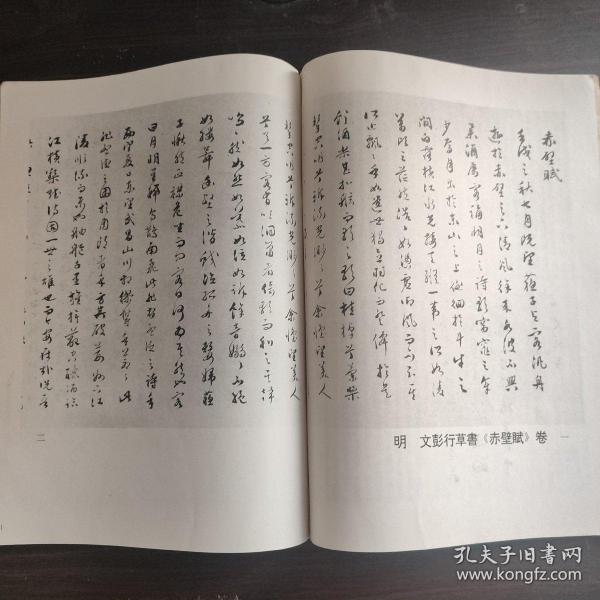 赤壁賦
壬戌之秋七月既望蘇子與客泛舟
遊於赤壁之下清風徐來水波不興
舉酒屬客誦明月之詩歌窈窕之章
少焉月出於東山之上徘徊於斗牛之
間白露橫江水光接天縱一葦之所如凌
萬頃之茫然浩浩乎如馮虛御風而不知其
所止飄飄乎如遺世獨立羽化而登僊於是
飲酒樂甚扣舷而歌之歌曰桂棹兮蘭槳
擊空明兮泝流光渺渺兮余懷望美人
明 文彭行草書《赤壁賦》卷
一
擊空明兮泝流光渺渺兮余懷望美人
兮天一方客有吹洞簫者倚歌而和之其聲
嗚嗚然如怨如慕如泣如訴餘音嫋嫋不絕
如縷舞幽壑之潛蛟泣孤舟之嫠婦蘇
子愀然正襟危坐而問客曰何為其然也客
曰月明星稀烏鵲南飛此非曹孟德之詩乎
西望夏口東望武昌山川相繆鬱乎蒼蒼此
非孟德之困於周郎者乎方其破荊州下江
陵順流而東也舳艫千里旌旗蔽空釃酒臨
江橫槊賦詩固一世之雄也而今安在哉況吾
二
孔夫子旧书网
www.kongfz.com